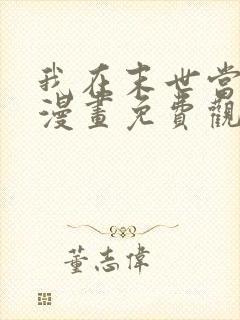 我在末世当
漫畫免費觀
董志偉